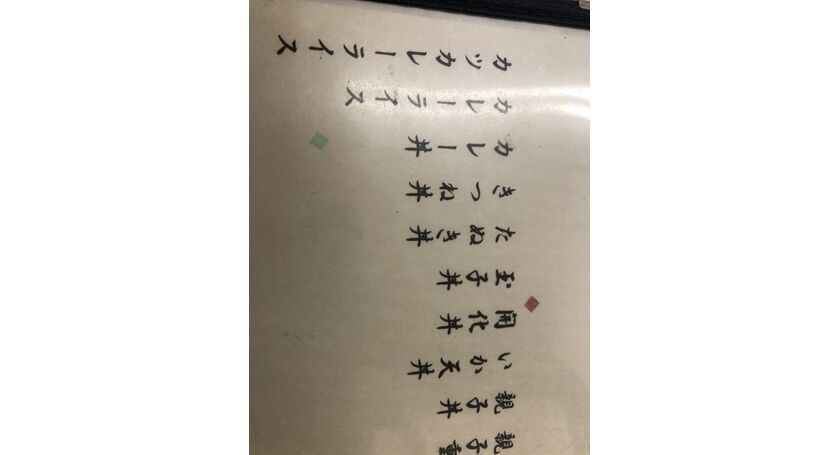 親子重
親子丼
いか天丼
開化丼
玉子丼
たぬき丼
きつね丼
カレー丼
カレーライス
カツカレーライス